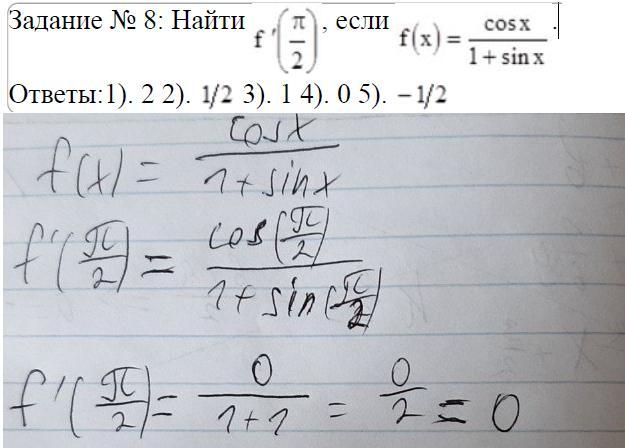 Задание № 8: Найти f '(π/2), если f(x) = cos x / (1 + sin x).
Ответы:1). 2 2). 1/2 3). 1 4). 0 5). −1/2
f(x) = cosx / (1 + sinx)
f'(π/2) = cos(π/2) / (1 + sin(π/2))
f'(π/2) = 0 / (1+1) = 0/2 = 0